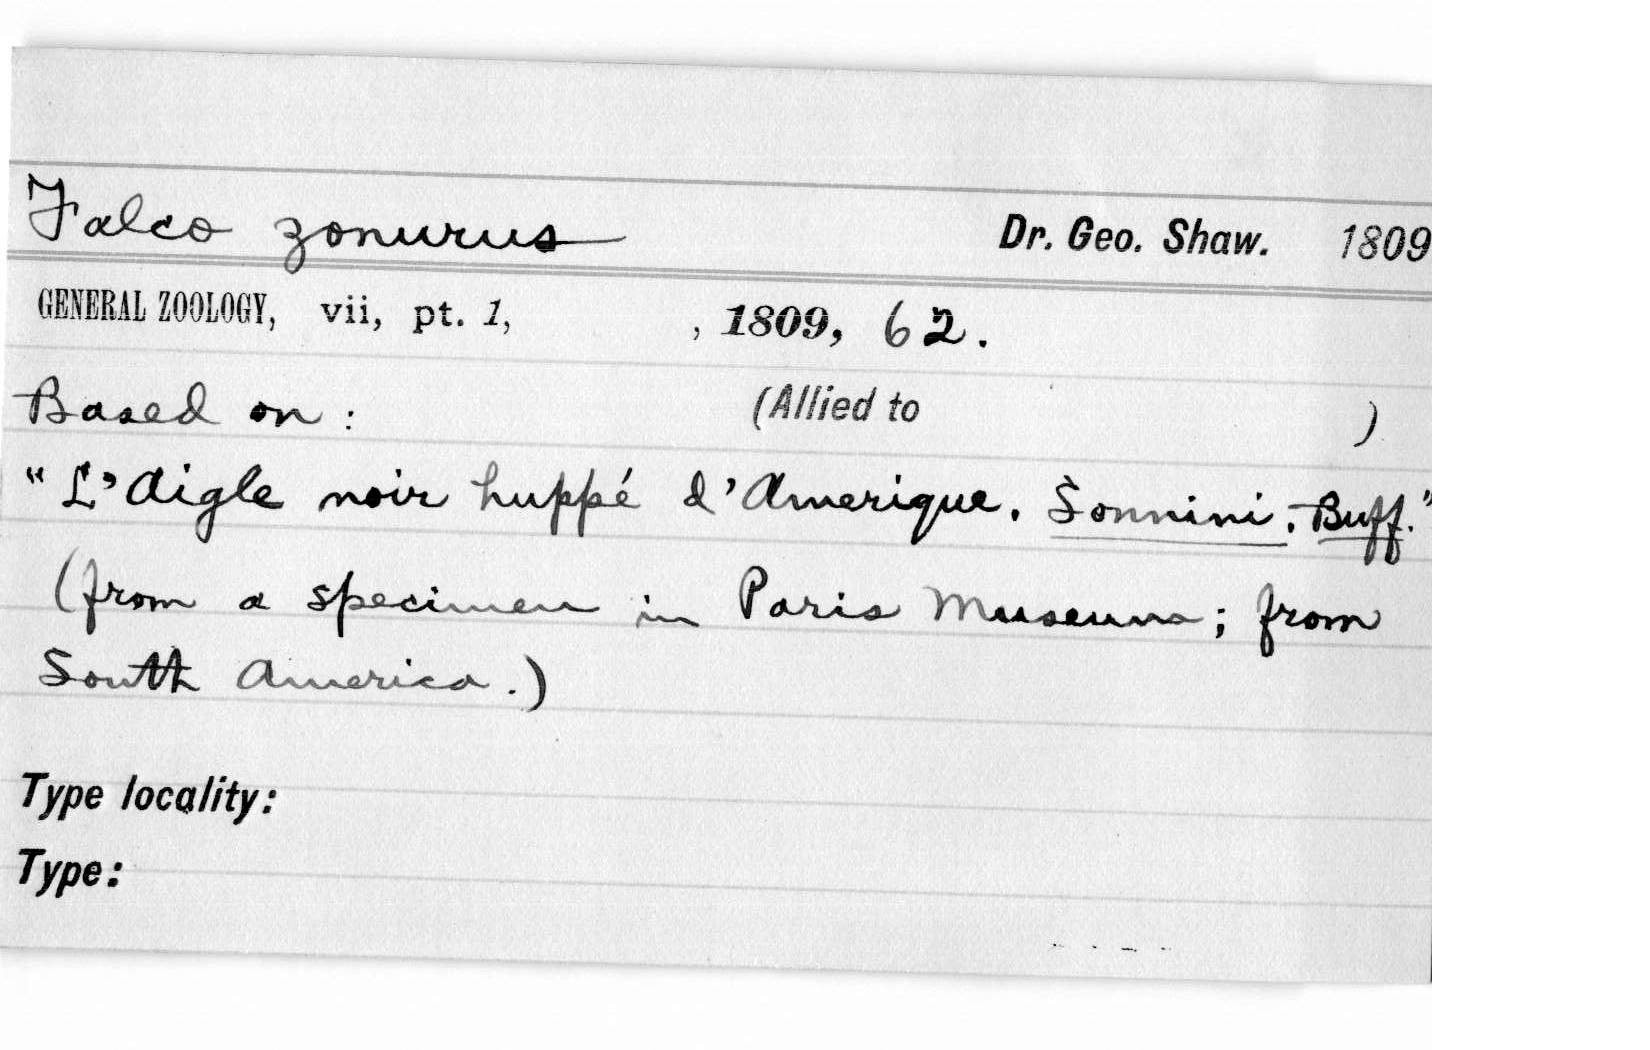 Falco zonurus Dr. Geo. Shaw. 1809
GENERAL ZOOLOGY, vii, pt. 1, , 1809, 62.
Based on : (Allied to )
"L'Aigle noir huppé d'Amerique. Sonnini. Buff."
(from a specimen in Paris Museum; from
South America.)
Type locality:
Type: